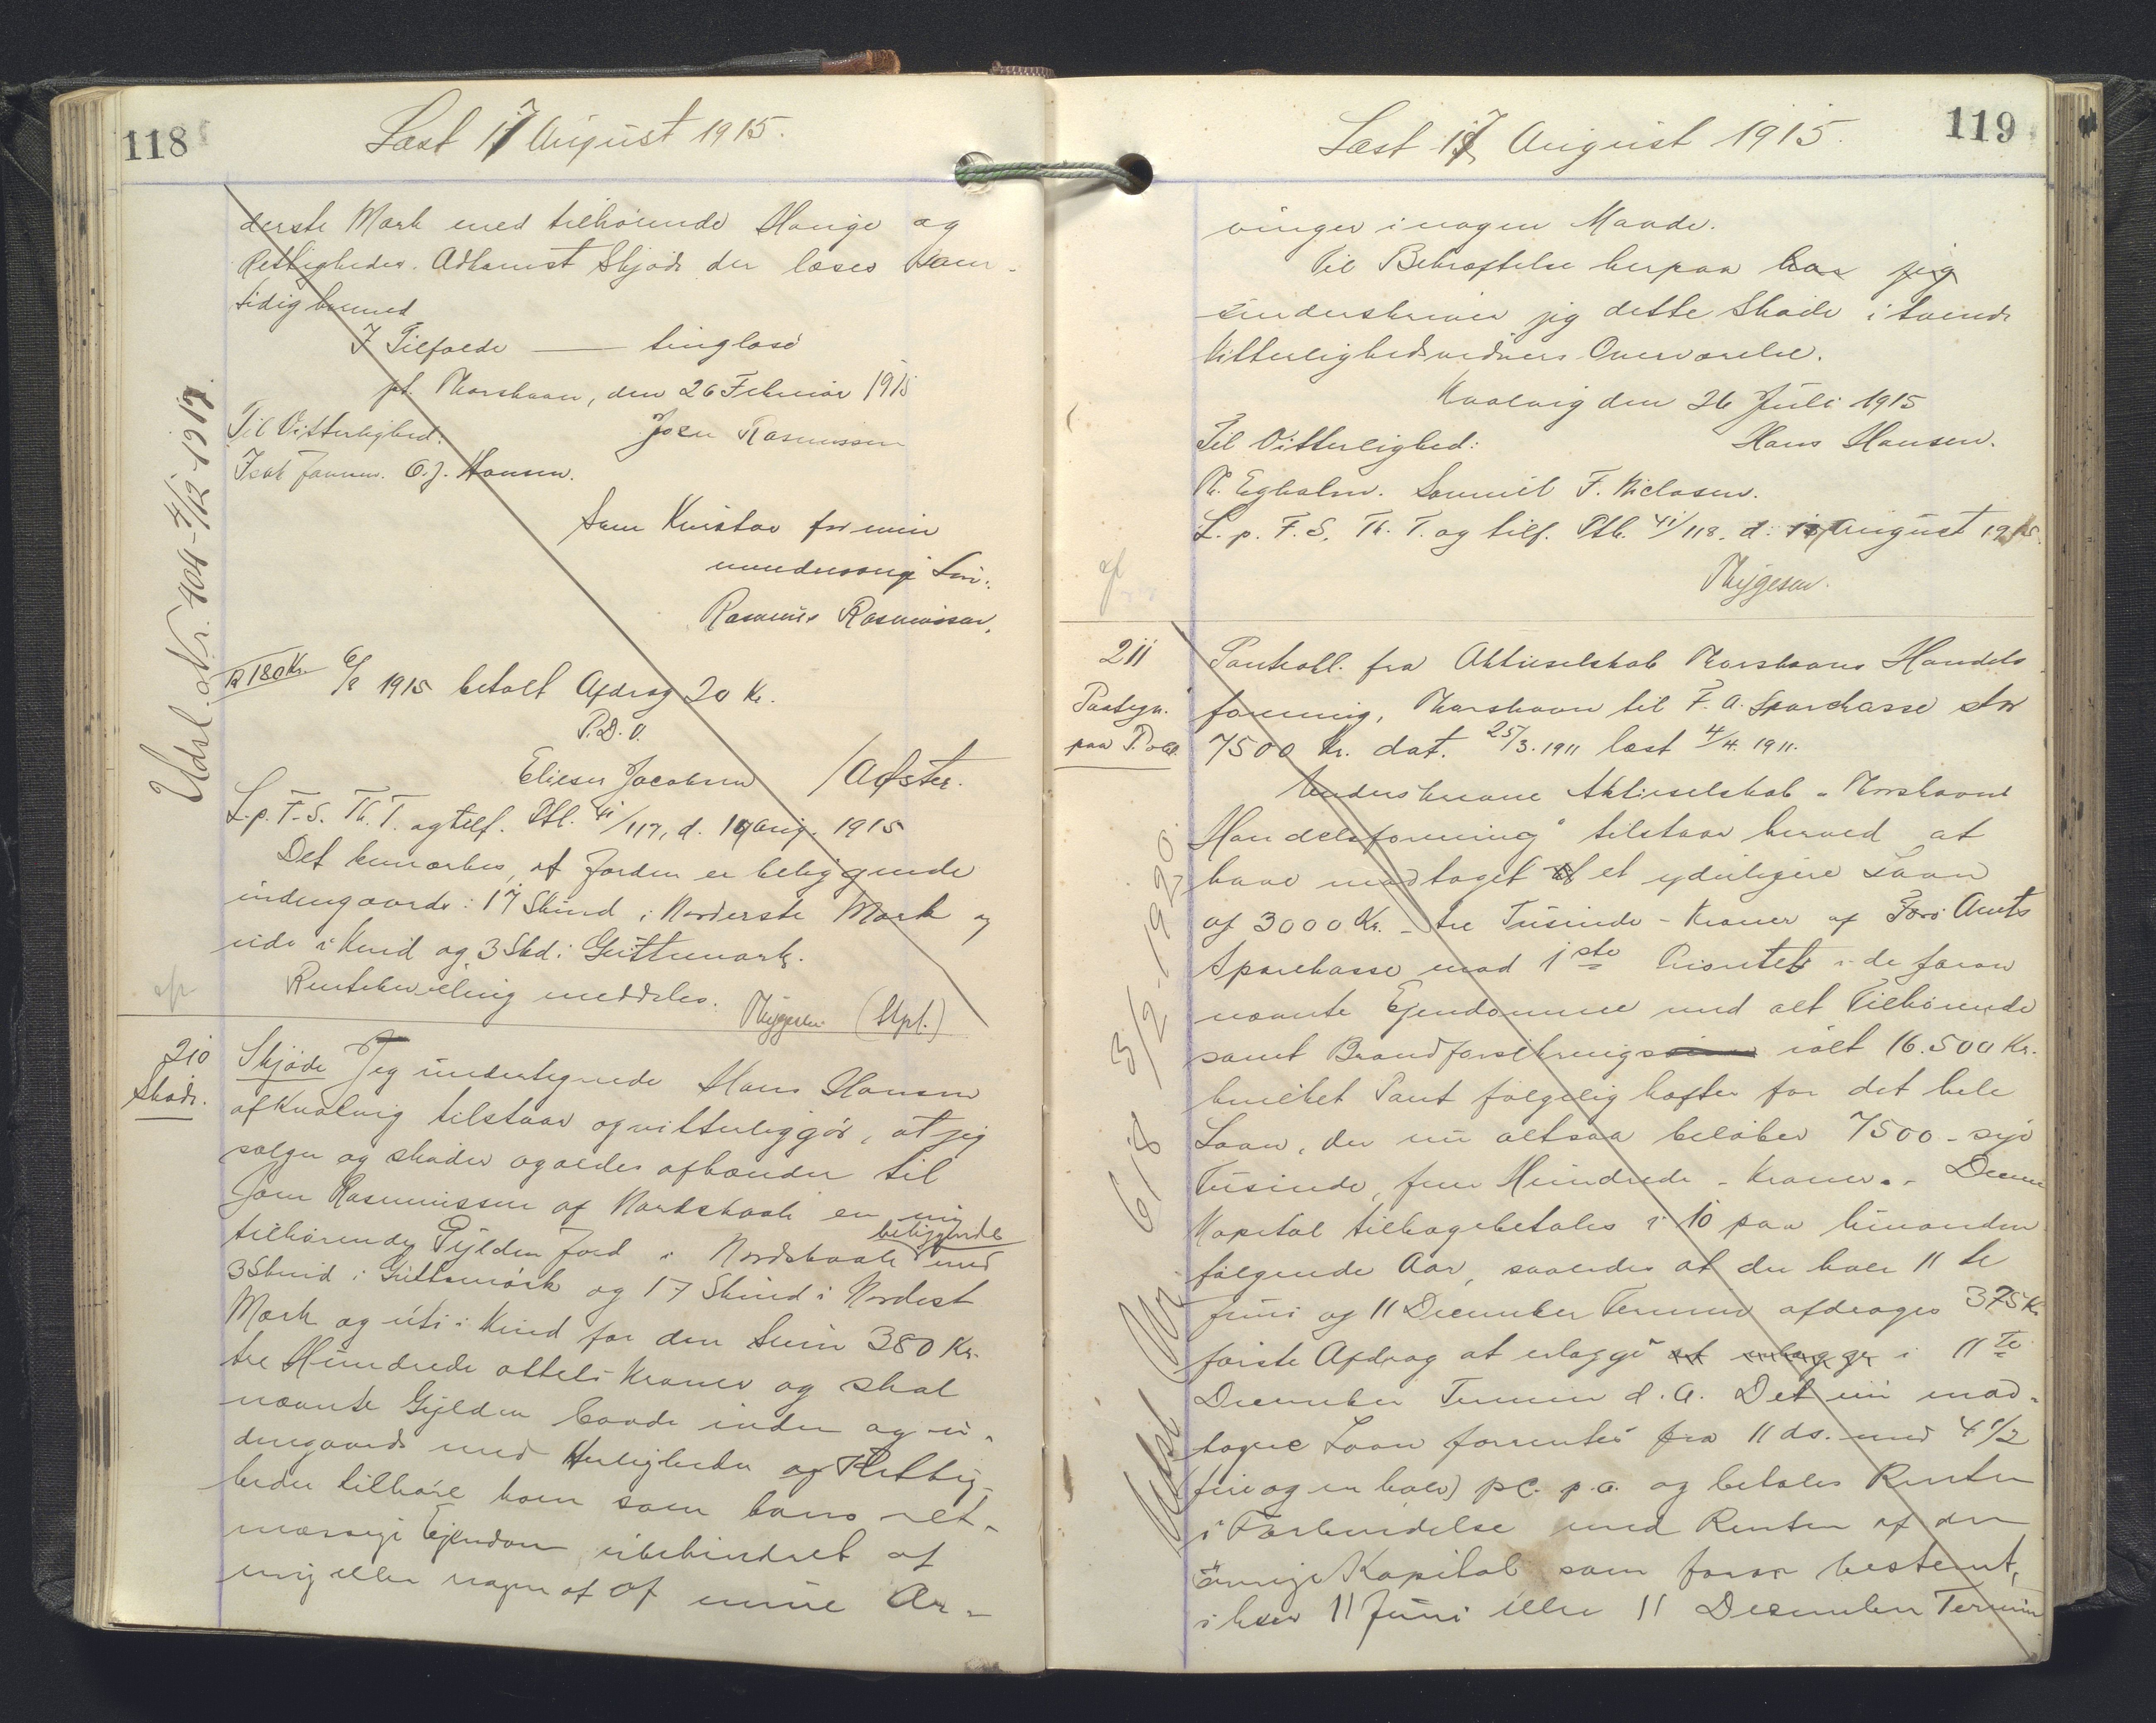 118
Læst 17 August 1915.
derste Mark med tilhørende Hauge og
Rettigheder. Adkomst Skjøde der læses sam-
tidig hermed
I Tilfælde — tinglæse
pt. Thorshavn, den 26 Februar 1915
Til Vitterlighed: Joen Rasmussen
O. J. Hansen.
Som Kurator for min
mindreaarige Søn:
Rasmus Rasmussen.
R 180 Kr. 6/8 1915 betalt Afdrag 20 Kr.
P.D.V.
Elieser Jacobsen /Afster.
L. p. F. S. Th. T. og tilf. Ptb. 41/117, d. 17 Aug. 1915
Det bemærkes, at Jorden er beliggende
indengaards: 17 Skind i Norderste Mark og
ude i Kund og 3 Skd. i Guttumark.
Rentekvittering meddeles. Thygesen (Stpl.)
Udsl. Nr. 404 - 4/12-1917.
210
Skøde.
Skjøde Jeg undertegnede Hans Hansen
af Kvalvig tilstaar og vitterliggjør, at jeg
sælger og skøder og aldes afhænder til
Joen Rasmussen af Nordskaale en mig
beliggende
tilhørende Gylden Jord i Nordskaale med
3 Skind i Guttumørk og 17 Skind i Nordest
Mark og uti i Kund for den Sum 380 Kr.
tre Hundrede otteti Kroner og skal
nævnte Gylden baade inden og u-
dengaards med Herligheder og Rettig-
heder tilhøre ham som hans ret-
mæssige Ejendom ubehindret af
mig eller nogen af af mine Ar-
119
Læst 17 August 1915.
vinger i nogen Maade.
Til Bekræftelse herpaa har jeg
underskriver jeg dette Skøde i tvende
Vitterlighedsvidners Overværelse.
Kvalvig den 26 Juli 1915
Til Vitterlighed: Hans Hansen.
Th. Egholm. Samuel F. Niclasen.
L. p. F. S. Th. T. og tilf. Ptb. 41/118. d. 17 August 1915.
Thygesen.
211
Paategn.
paa P.obl.
Pantobl. fra Aktieselskab Thorshavns Handels-
forening, Thorshavn til F. A. Sparekasse stor
7500 Kr. dat. 25/3. 1911 læst 4/4. 1911.
Underskrevne Aktieselskab "Thorshavns
Handelsforening" tilstaar herved at
have modtaget et yderligere Laan
af 3000 Kr. - tre Tusinde - Kroner af Færø Amts
Sparekasse mod 1ste Prioritet i de foran
nævnte Ejendomme med alt Tilhørende
samt Brandforsikrings ialt 16.500 Kr.
hvilket Pant følgelig hæfter for det hele
Laan, der nu altsaa beløber 7500 - syv
Tusinde, fem Hundrede - Kroner. - Denne
Kapital tilbagebetales i 10 paa hinanden
følgende Aar, saaledes at der hver 11te
Juni og 11 December Termin afdrages 375 Kr.
første Afdrag at erlægge at erlægge i 11te
December Termin d. A. Det nu mod-
tagne Laan forrentes fra 11 ds. med 4 1/2
fire og en halv) pC. p. a. og betales Renten
i Forbindelse med Renten af den
øvrige Kapital som foran bestemt,
i hver 11 Juni eller 11 December Termin
Udsl. Nr. 618 3/2-1920.